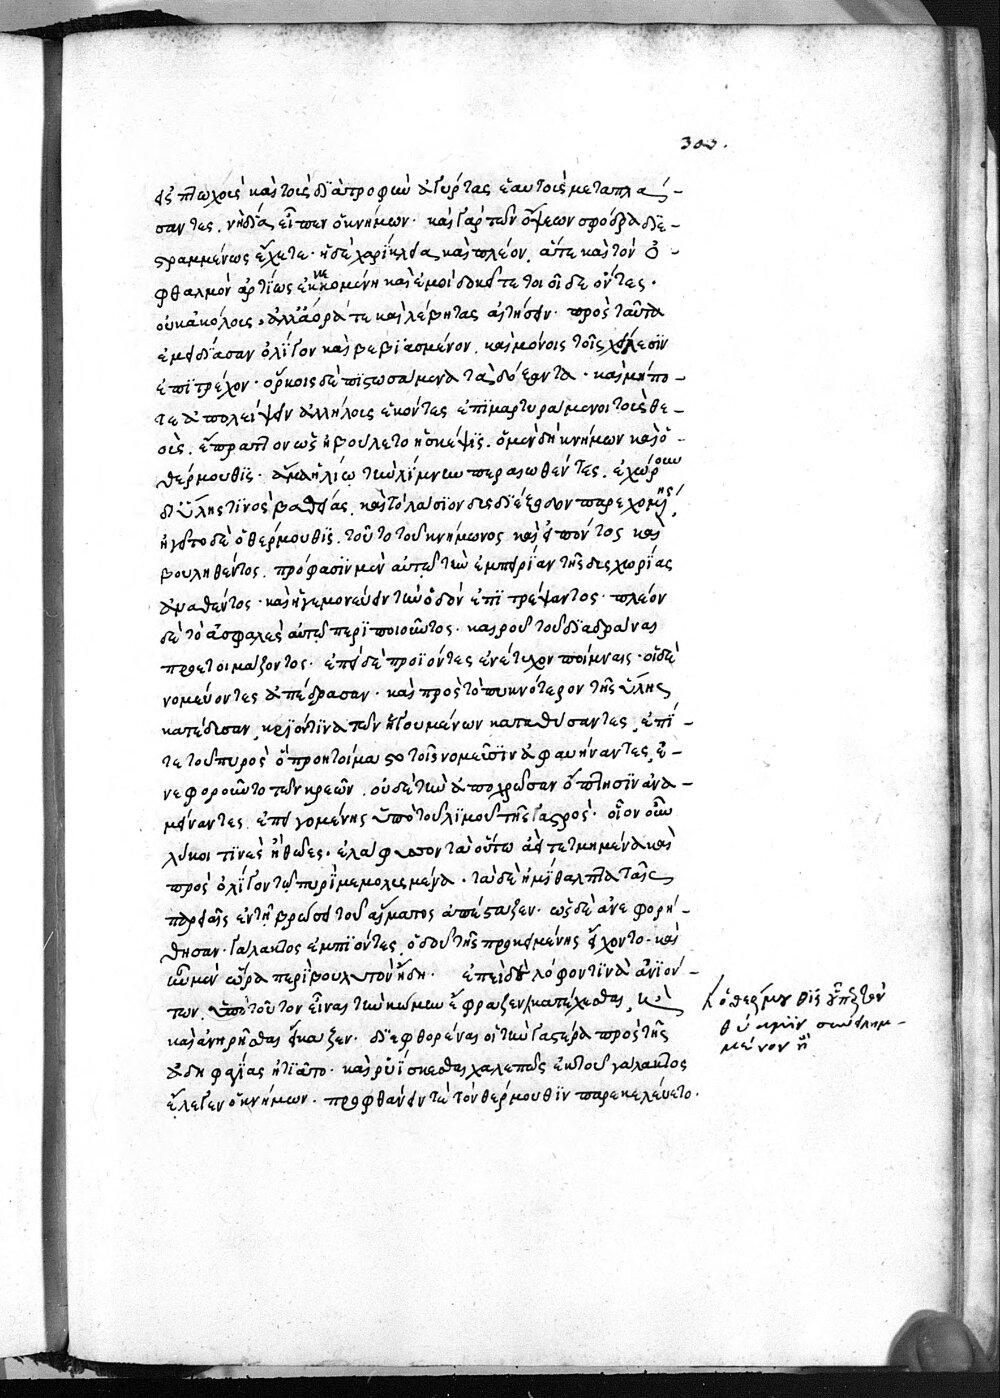 300.
εἰς πτωχοὺς καὶ τοὺς διὰ τροφὴν ἀγύρτας ἑαυτοὺς μεταπλά-
σαντες. νὴ δία εἶπεν ὁ κνήμων· καὶ γὰρ τῶν ὄψεων σφόδρα διε-
στραμμένως ἔχετε· ἡ δὲ χαρίκλεια καὶ πλέον, ἅτε καὶ τὸν ὀ-
φθαλμὸν ἀρτίως ἐκκεκομμένη καὶ ἐμοὶ δοκεῖτε τοιοίδε ὄντες·
οὐκ ἀκόλους, ἀλλ' ἄορά τε καὶ λέβητας αἰτήσειν· πρὸς ταῦτα
ἐμειδίασαν ὀλίγον καὶ βεβιασμένον, καὶ μόνοις τοῖς χείλεσιν
ἐπιτρέχον· ὅρκοις δὲ πιστωσάμενοι τὰ δόξαντα· καὶ μήπο-
τε ἀπολείψειν ἀλλήλους ἑκόντες ἐπιμαρτυράμενοι τοὺς θε-
οὺς, ἔπραττον ὡς ἠβούλετο ἡ σκέψις. ὁ μὲν δὴ κνήμων καὶ ὁ
θέρμουθις· ἅμα ἡλίῳ τὴν λίμνην περαιωθέντες, ἐχώρουν
δι' ὕλης τινὸς βαθείας, καὶ τὸ λάσιον δυσδιέξοδον παρεχομένης,
ἡγεῖτο δὲ ὁ θέρμουθις. τοῦτο τοῦ κνήμωνος καὶ εἰπόντος καὶ
βουληθέντος. πρόφασιν μὲν αὐτῷ τὴν ἐμπειρίαν τῆς δυσχωρίας
ἀναθέντος· καὶ ἡγεμονεύειν τὴν ὁδὸν ἐπιτρέψαντος· πλέον
δὲ τὸ ἀσφαλὲς αὑτῷ περιποιοῦντος· καιρὸν τοῦ διαδρᾶναι
προετοιμάζοντος· ἐπεὶ δὲ προϊόντες ἐνέτυχον ποίμναις· οἱ δὲ
νομεύοντες ἀπέδρασαν· καὶ πρὸς τὸ πυκνότερον τῆς ὕλης
κατέδυσαν, κριόν τινα τῶν ἡγουμένων καταθύσαντες, ἐπί
τε τοῦ πυρὸς ὃ προητοίμαστο τοῖς νομεῦσιν ἀφαυήναντες, ἐ-
νεφοροῦντο τῶν κρεῶν. οὐδὲ τὴν ἀποχρῶσαν ὄπτησιν ἀνα-
μείναντες, ἐπειγομένης ὑπὸ τοῦ λιμοῦ τῆς γαστρός· οἷον οὖν
λύκοι τινὲς ἢ θῶες· ἐλάφυσσον τὰ οὕτω ἀεὶ τετμημένα καὶ
πρὸς ὀλίγον τῷ πυρὶ μεμολυσμένα· τὰ δὲ ἡμίθαλπτα ταῖς
παρειαῖς ἐν τῇ βρώσει τοῦ αἵματος ἀπέσταζεν· ὡς δὲ ἀνεφορή-
θησαν· γάλακτος ἐμπιόντες, ὁδοῦ τῆς προκειμένης εἴχοντο· καὶ
ἦν μὲν ὥρα περὶ βουλυτὸν ἤδη· ἐπεὶ δὲ λόφον τινὰ ἀνιόν-
των, ὑπὸ τοῦτον εἶναι τὴν κώμην ἔφραζεν κατέχεσθαι, καὶ
καὶ ἀνῃρῆσθαι εἴκαζεν. διεφθορέναι οἱ τὴν γαστέρα πρὸς τῆς
ἀδηφαγίας ᾐτιᾶτο· καὶ ῥυΐσκεσθαι χαλεπῶς ἐκ τοῦ γάλακτος
ἔλεγεν ὁ κνήμων· προφθάνειν τε τὸν θέρμουθιν παρεκελεύετο.
ὁ θέρμουθις
θύαμιν συνειλημ-
μένον ἢ